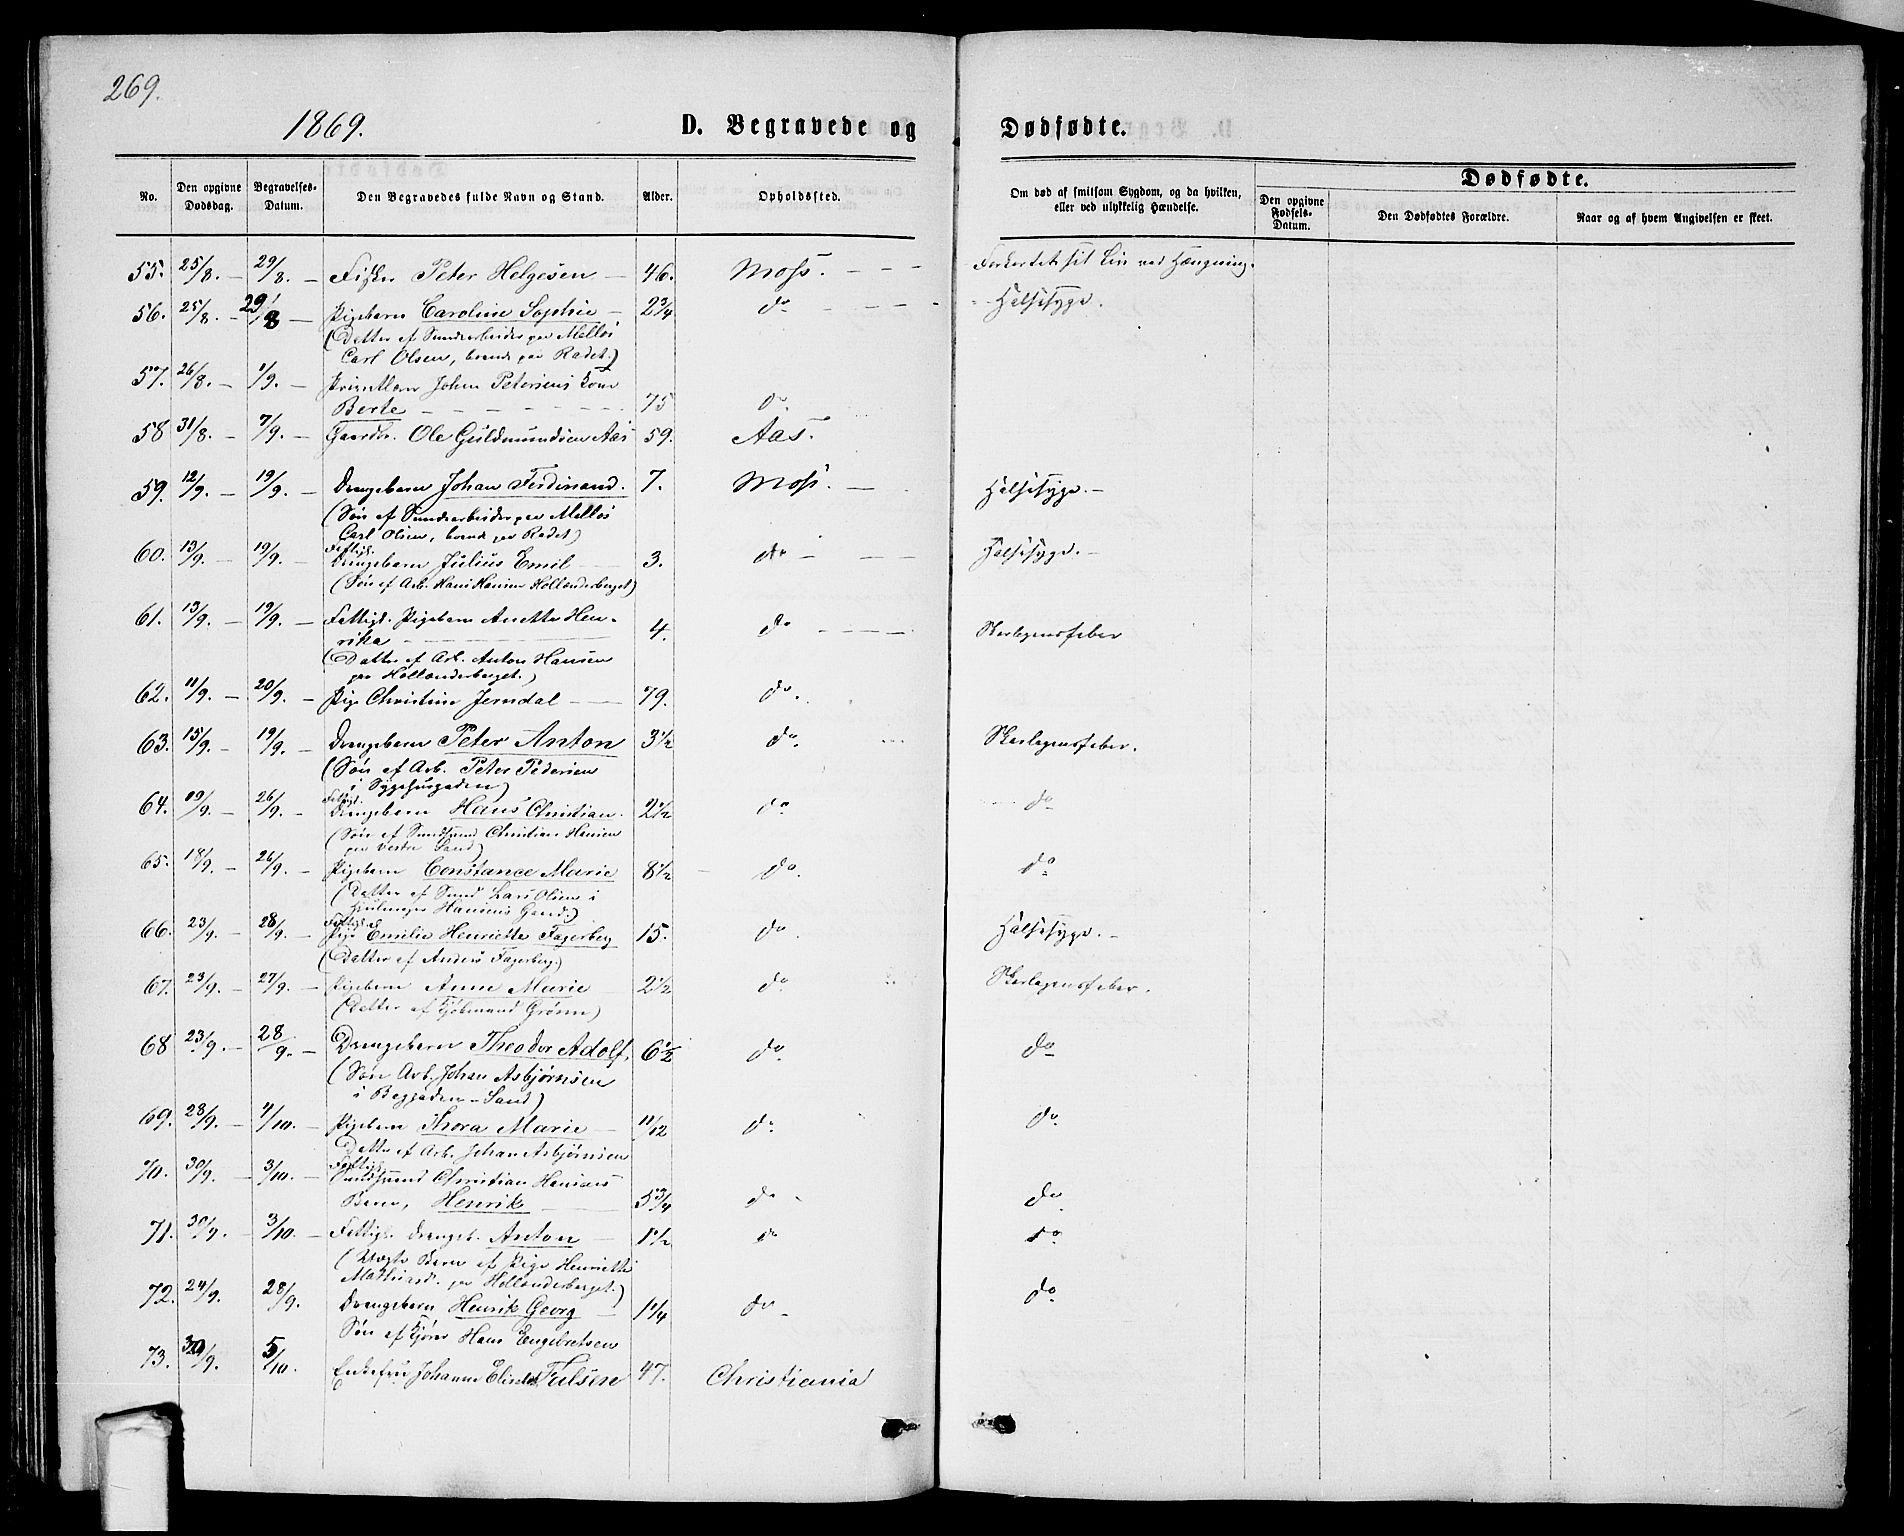 269.
1869.
D. Begravede og Dødfødte.
No. Den opgivne Dødsdag. Begravelses-Datum. Den Begravedes fulde Navn og Stand. Alder. Opholdssted. Om død af smitsom Sygdom, og da hvilken, eller ved ulykkelig Hændelse. Dødfødte.
Den opgivne Fødsels-Datum. Den Dødfødtes Forældre. Naar og af hvem Angivelsen er skeet.
55. 25/8. — 29/8. — Fisker Peter Helgesen — 46. Moss. - - - Forkortet sit Liv ved Hængning.
56. 25/8. — 29/8 — Pigebarn Caroline Sophie — 2 3/4 do - - Halssyge.
(Datter af paa Melløs
Carl Olsen, boende paa Radet.)
57. 26/8. — 1/9. — Johan Petersens Kone
Berte - - - - 75 do.
58 31/8. — 7/9. — Gaardbr. Ole Guldmundsen Aas 59. Aas.
59. 12/9. — 19/9. — Drengebarn Johan Ferdinand. 7. Moss. — Halssyge. —
(Søn af paa Melløs
Carl Olsen, boende paa Radet)
60. 13/9. — 19/9. — Fattigl. Drengebarn Julius Emil 3. do — — Halssyge. —
(Søn af Arb. Hans Hansen Hollænderberget)
61. 13/9. — 19/9. — Fattigl. Pigebarn Anette Hen-
rika 4. do - - - Skarlagensfeber
(Datter af Arb. Anton Hansen
paa Hollænderberget.)
62. 11/9. — 20/9. — Pige Christine Jerndal — 79. do.
63. 15/9. — 19/9. — Drengebarn Peter Anton 3 1/2 do. Skarlagensfeber.
(Søn af Arb. Peter Pedersen
i Sygehusgaden)
64. 19/9. — 26/9. — Fattigl. Drengebarn Hans Christian. 2 1/2 do do
(Søn af Christian Hansen
paa Vestre Sand)
65. 18/9. — 26/9. — Pigebarn Constance Marie 8 1/2 - do. do
(Datter af Lars Olsen i
Hansens Gaard.)
66. 23/9. — 28/9. — Fattigl. Pige Emilie Henriette Fagerberg 15. do. Halssyge. —
(Datter af Anders Fagerberg.)
67. 23/9. — 27/9. — Pigebarn Anne Marie 2 1/2 do. Skarlagensfeber.
(Datter af Kjøbmand Grønn)
68 23/9. — 28/9. — Drengebarn Theodor Adolf, 6 1/2 do do
(Søn Arb. Johan Asbjørnsen
i Baggaden - Sand)
69. 28/9. — 4/10. — Pigebarn Thora Marie — 11/12 do do.
Datter af Arb. Johan Asbjørnsen
70. 30/9. — 3/10. — Fattigl. Christian Hansens
Barn, Henrik 5 3/4 do do.
71. 30/9. — 3/10. — Fattigl. Drengeb. Anton — 1 1/2 do do
(Uægte Barn af Pige Henriette
Mathiasd. paa Hollænderberget.)
72. 24/9. 28/9. Drengebarn Henrik Georg — 1 1/4 do do
Søn af Hans Engebretsen
73. 30/9. 5/10. Enkefru Johanne Falsen 47. Christiania